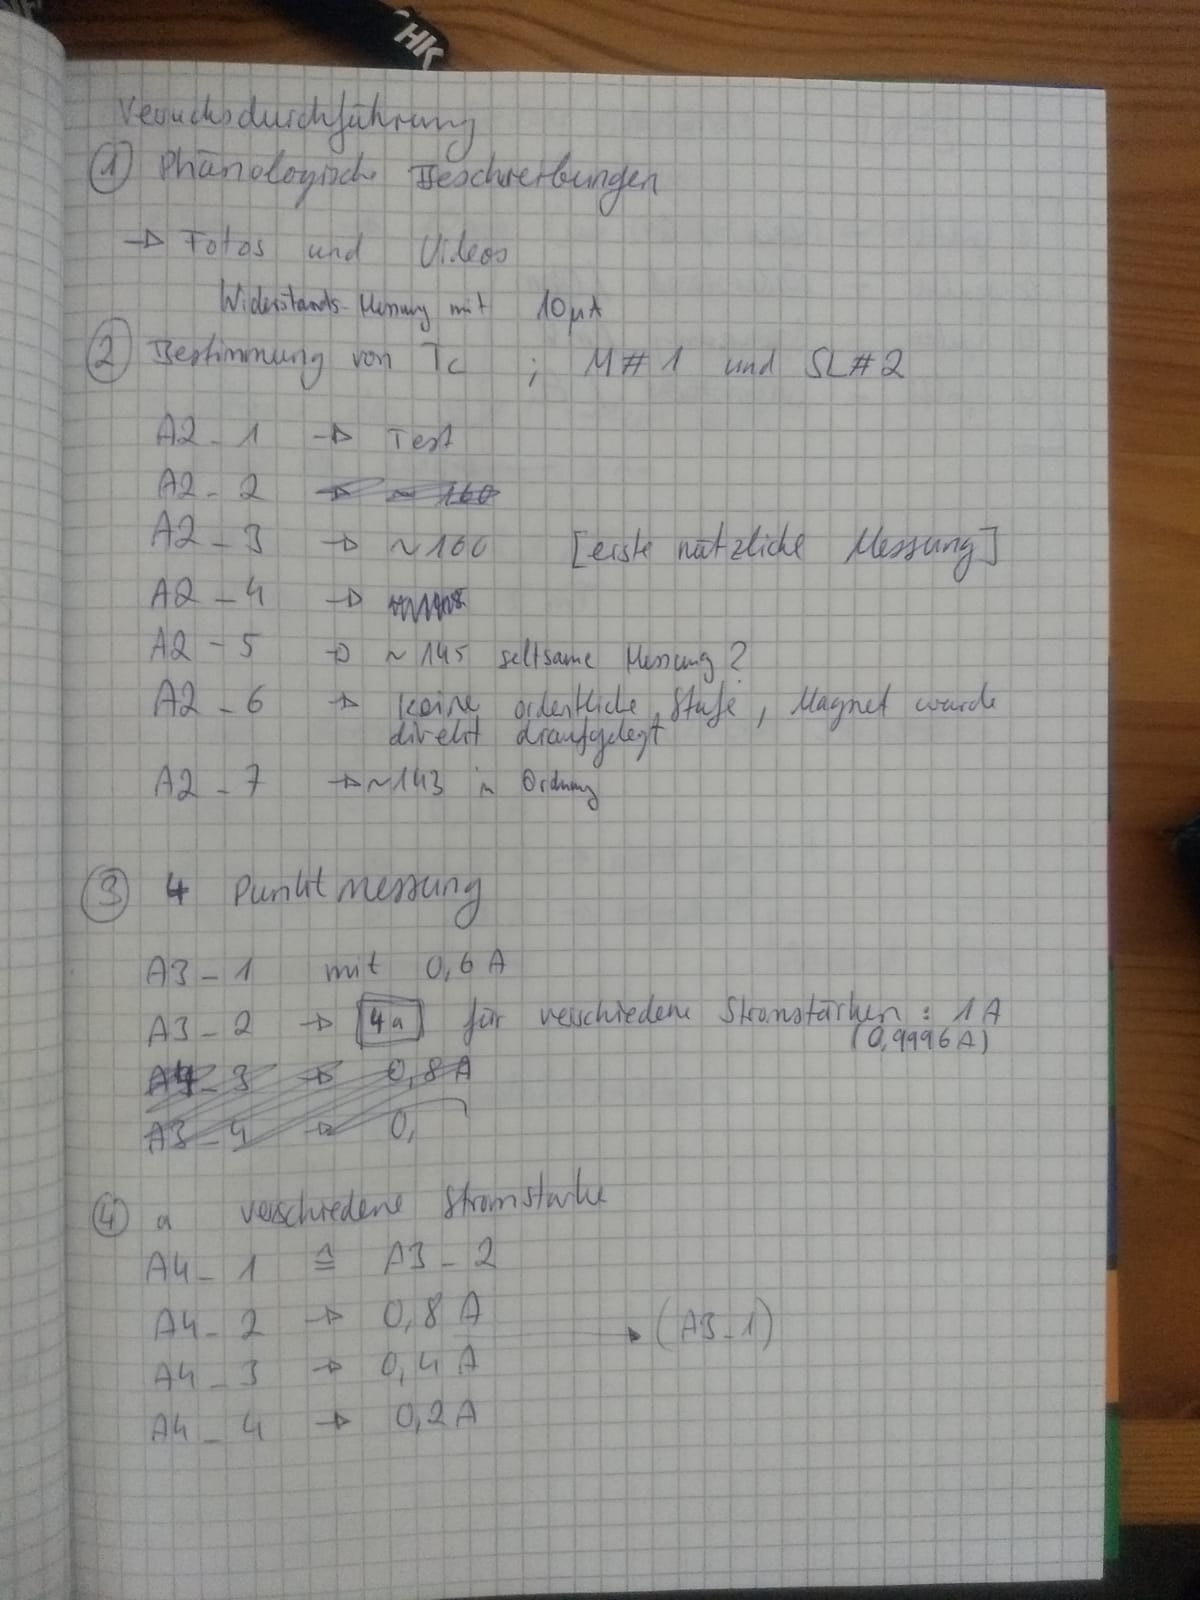 HK
Versuchsdurchführung
① Phänologische Beschreibungen
→ Fotos und Videos
Widerstands-Messung mit 10µA
② Bestimmung von Tc ; M#1 und SL#2
A2_1 → Test
A2_2 → ~160
A2_3 → ~160 [erste nützliche Messung]
A2_4 →
A2_5 → ~145 seltsame Messung?
A2_6 → keine ordentliche Stufe, Magnet wurde
direkt draufgelegt
A2_7 → ~143 in Ordnung
③ 4 Punktmessung
A3_1 mit 0,6 A
A3_2 → 4a für verschiedene Stromstärken: 1A
(0,9996A)
A4_3 → 0,8A
A3_4 → 0,
④ a verschiedene Stromstärke
A4_1 ≙ A3_2
A4_2 → 0,8 A
→ (A3_1)
A4_3 → 0,4 A
A4_4 → 0,2A